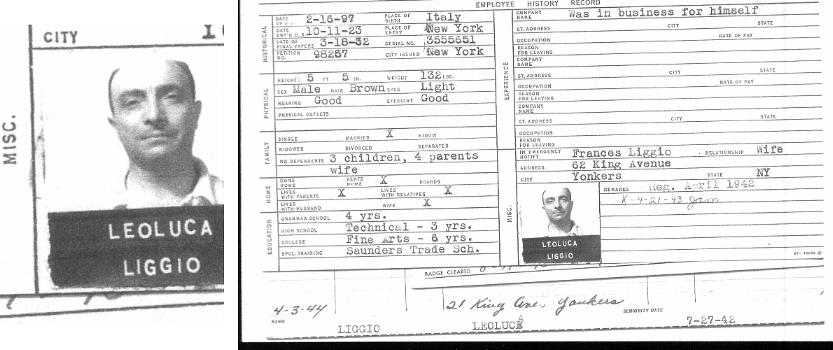 CITY
MISC.
LEOLUCA
LIGGIO
EMPLOYEE HISTORY RECORD
HISTORICAL
DATE OF 2-16-97 PLACE OF BIRTH Italy
DATE ENT'D U.S. 10-11-23 PLACE OF ENTRY New York
DATE OF FINAL PAPERS 3-18-32 SERIAL NO. 3555651
PETITION NO. 98257 CITY ISSUED New York
PHYSICAL
HEIGHT: 5 FT. 5 IN. WEIGHT 132 LBS.
SEX Male HAIR Brown EYES Light
HEARING Good EYESIGHT Good
PHYSICAL DEFECTS
FAMILY
SINGLE MARRIED X WIDOW
WIDOWER DIVORCED SEPARATED
NO. DEPENDENTS 3 children, 4 parents
wife
HOME
OWNS HOME RENTS HOME X BOARDS
LIVES WITH PARENTS X LIVES WITH RELATIVES X
LIVES WITH HUSBAND WIFE X
EDUCATION
GRAMMAR SCHOOL 4 yrs.
HIGH SCHOOL Technical - 3 yrs.
COLLEGE Fine Arts - 6 yrs.
SPCL. TRAINING Saunders Trade Sch.
EXPERIENCE
COMPANY NAME Was in business for himself
ST. ADDRESS CITY STATE
OCCUPATION RATE OF PAY
REASON FOR LEAVING
COMPANY NAME
ST. ADDRESS CITY STATE
OCCUPATION RATE OF PAY
REASON FOR LEAVING
COMPANY NAME
ST. ADDRESS CITY STATE
OCCUPATION RATE OF PAY
REASON FOR LEAVING
MISC.
IN EMERGENCY NOTIFY Frances Liggio RELATIONSHIP Wife
ADDRESS 62 King Avenue
CITY Yonkers STATE NY
REMARKS Reg. April 1942
K-4-21-43
LEOLUCA
LIGGIO
BADGE CLEARED
4-3-44 21 King Ave, Yonkers
NAME SENIORITY DATE
LIGGIO LEOLUCA 7-27-42